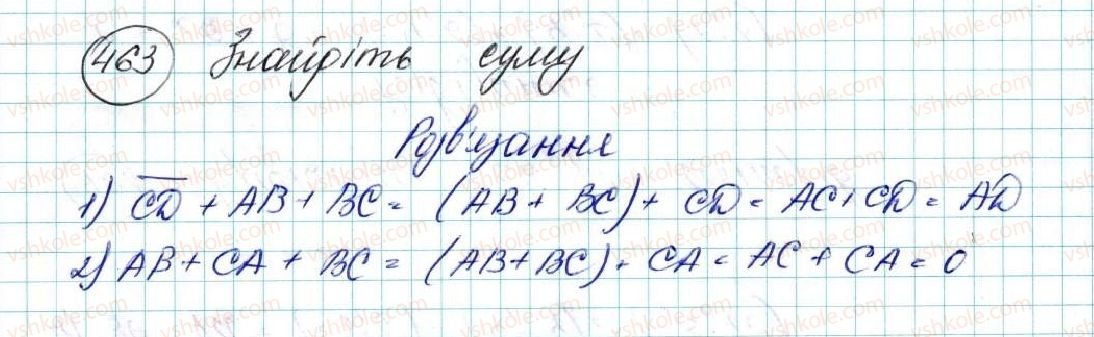 463 Знайдіть суму
Розв'язання
1) C̅D̅ + AB + BC = (AB + BC) + CD = AC + CD = AD
2) AB + CA + BC = (AB + BC) + CA = AC + CA = 0